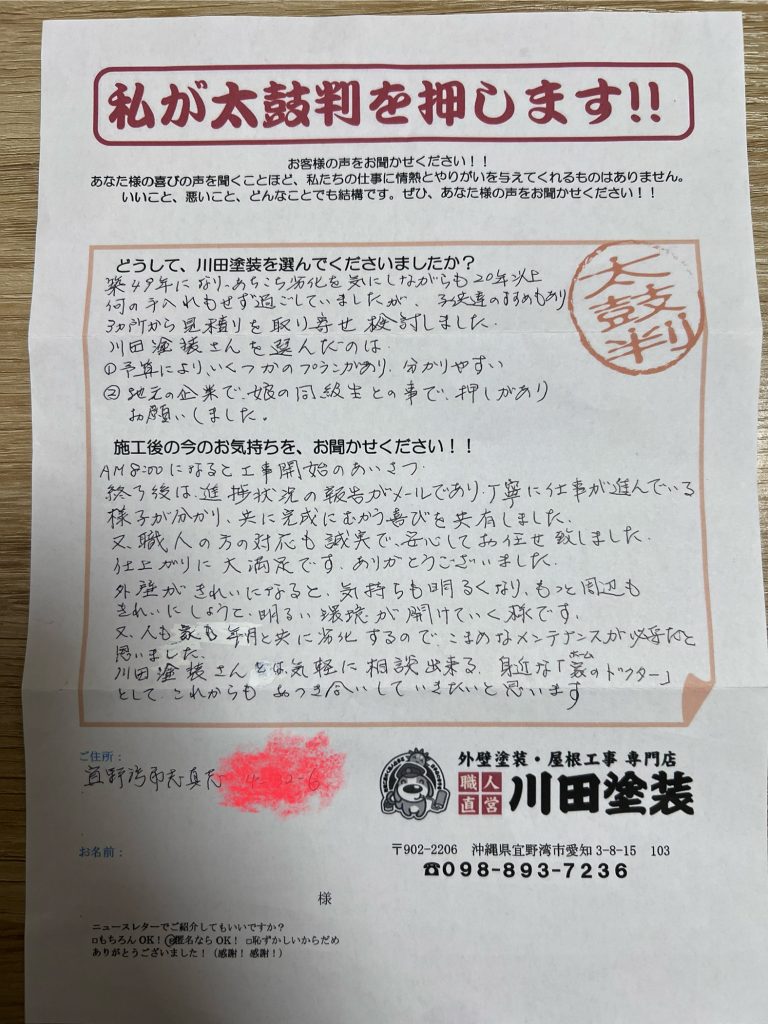 私が太鼓判を押します!!
お客様の声をお聞かせください！！
あなた様の喜びの声を聞くことほど、私たちの仕事に情熱とやりがいを与えてくれるものはありません。
いいこと、悪いこと、どんなことでも結構です。ぜひ、あなた様の声をお聞かせください！！
太鼓判
どうして、川田塗装を選んでくださいましたか？
築49年になり、あちこち劣化を気にしながらも20年以上
何の手入れもせず過ごしていましたが、子供達のすすめもあり
3カ所から見積りを取り寄せ検討しました。
川田塗装さんを選んだのは
①予算により、いくつかのプランがあり、分かりやすい
②地元の企業で、娘の同級生との事で、押しがあり
お願いしました。
施工後の今のお気持ちを、お聞かせください！！
AM8:00になると工事開始のあいさつ
終了後は、進捗状況の報告がメールであり、丁寧に仕事が進んでいる
様子が分かり、共に完成にむかう喜びを共有しました。
又、職人の方の対応も誠実で、安心してお任せ致しました。
仕上がりに大満足です。ありがとうございました。
外壁がきれいになると、気持ちも明るくなり、もっと周辺も
きれいにしようと、明るい環境が開けていく様です。
又、人も家も年月と共に劣化するのでこまめなメンテナンスが必要だと
思いました。
川田塗装さんとは気軽に相談出来る、身近な「家のドクター」
ホーム
として、これからもおつき合いしていきたいと思います
ご住所：
宜野湾市志真志
お名前：
様
外壁塗装・屋根工事 専門店
職人直営 川田塗装
〒902-2206 沖縄県宜野湾市愛知3-8-15 103
☎098-893-7236
ニュースレターでご紹介してもいいですか？
□もちろんOK！ □匿名ならOK！ □恥ずかしいからだめ
ありがとうございました！（感謝！感謝！）